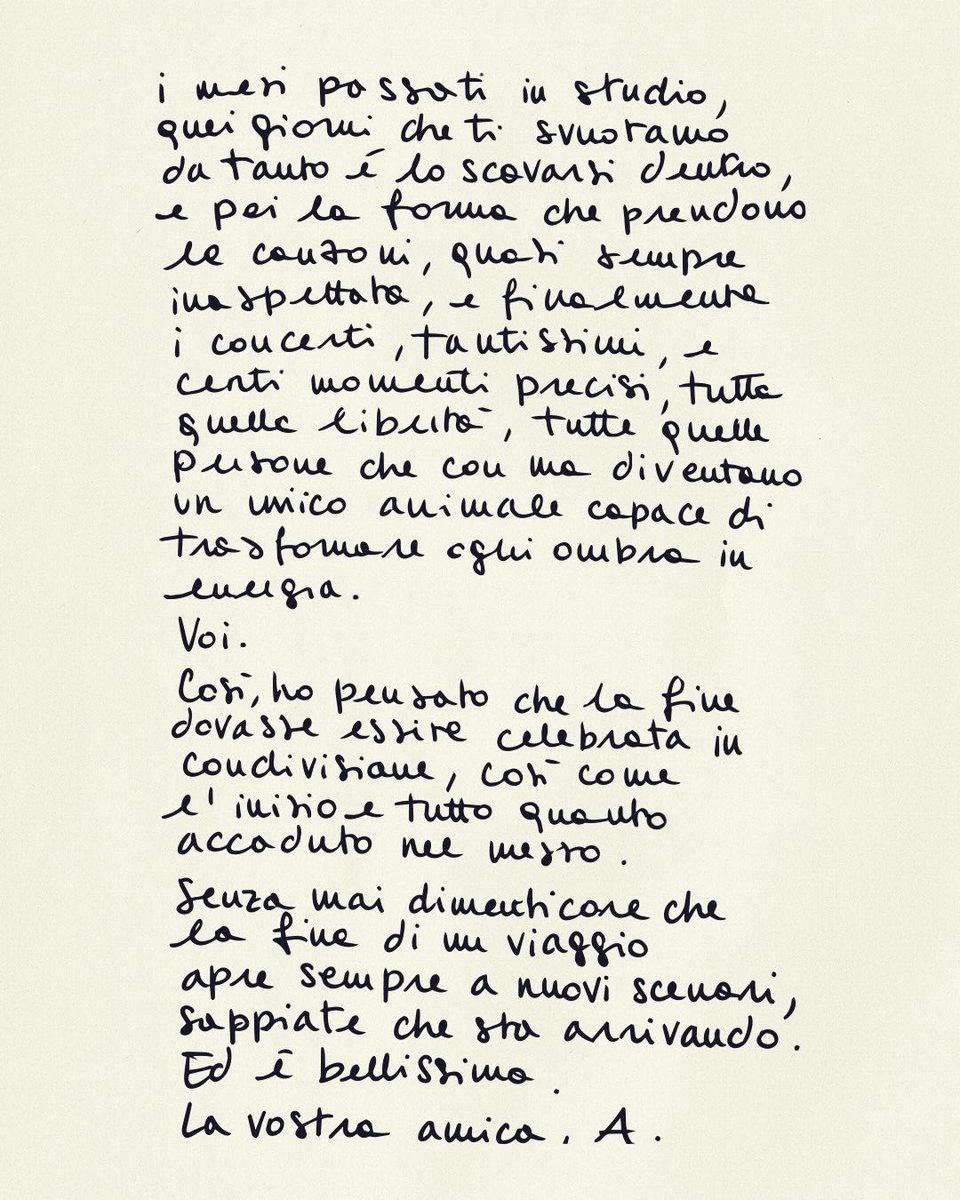 i mesi passati in studio,
quei giorni che ti svuotano
da tanto è lo scavarsi dentro,
e poi la forma che prendono
le canzoni, quasi sempre
inaspettata, e finalmente
i concerti, tantissimi, e
certi momenti precisi, tutta
quella libertà, tutte quelle
persone che con me diventano
un unico animale capace di
trasformare ogni ombra in
energia.
Voi.
Così, ho pensato che la fine
dovesse essere celebrata in
condivisione, così come
l'inizio e tutto quanto
accaduto nel mezzo.
Senza mai dimenticare che
la fine di un viaggio
apre sempre a nuovi scenari,
sappiate che sta arrivando.
Ed è bellissimo.
La vostra amica. A.